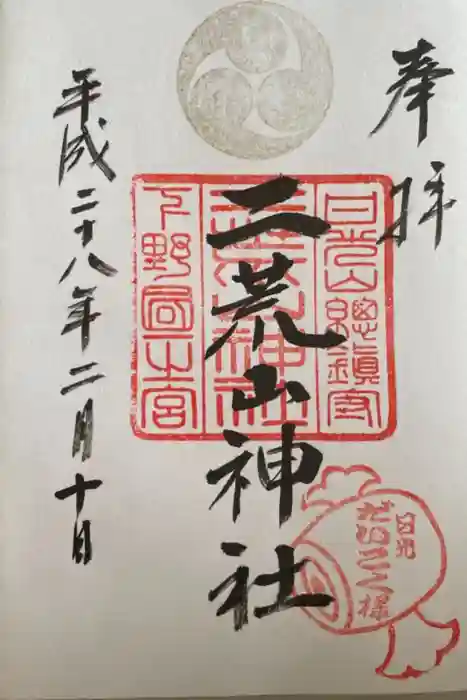 奉拝
二荒山神社
平成二十八年二月十日
日光山総鎮守
二荒山神社
下野國一之宮
日光
だいこく様